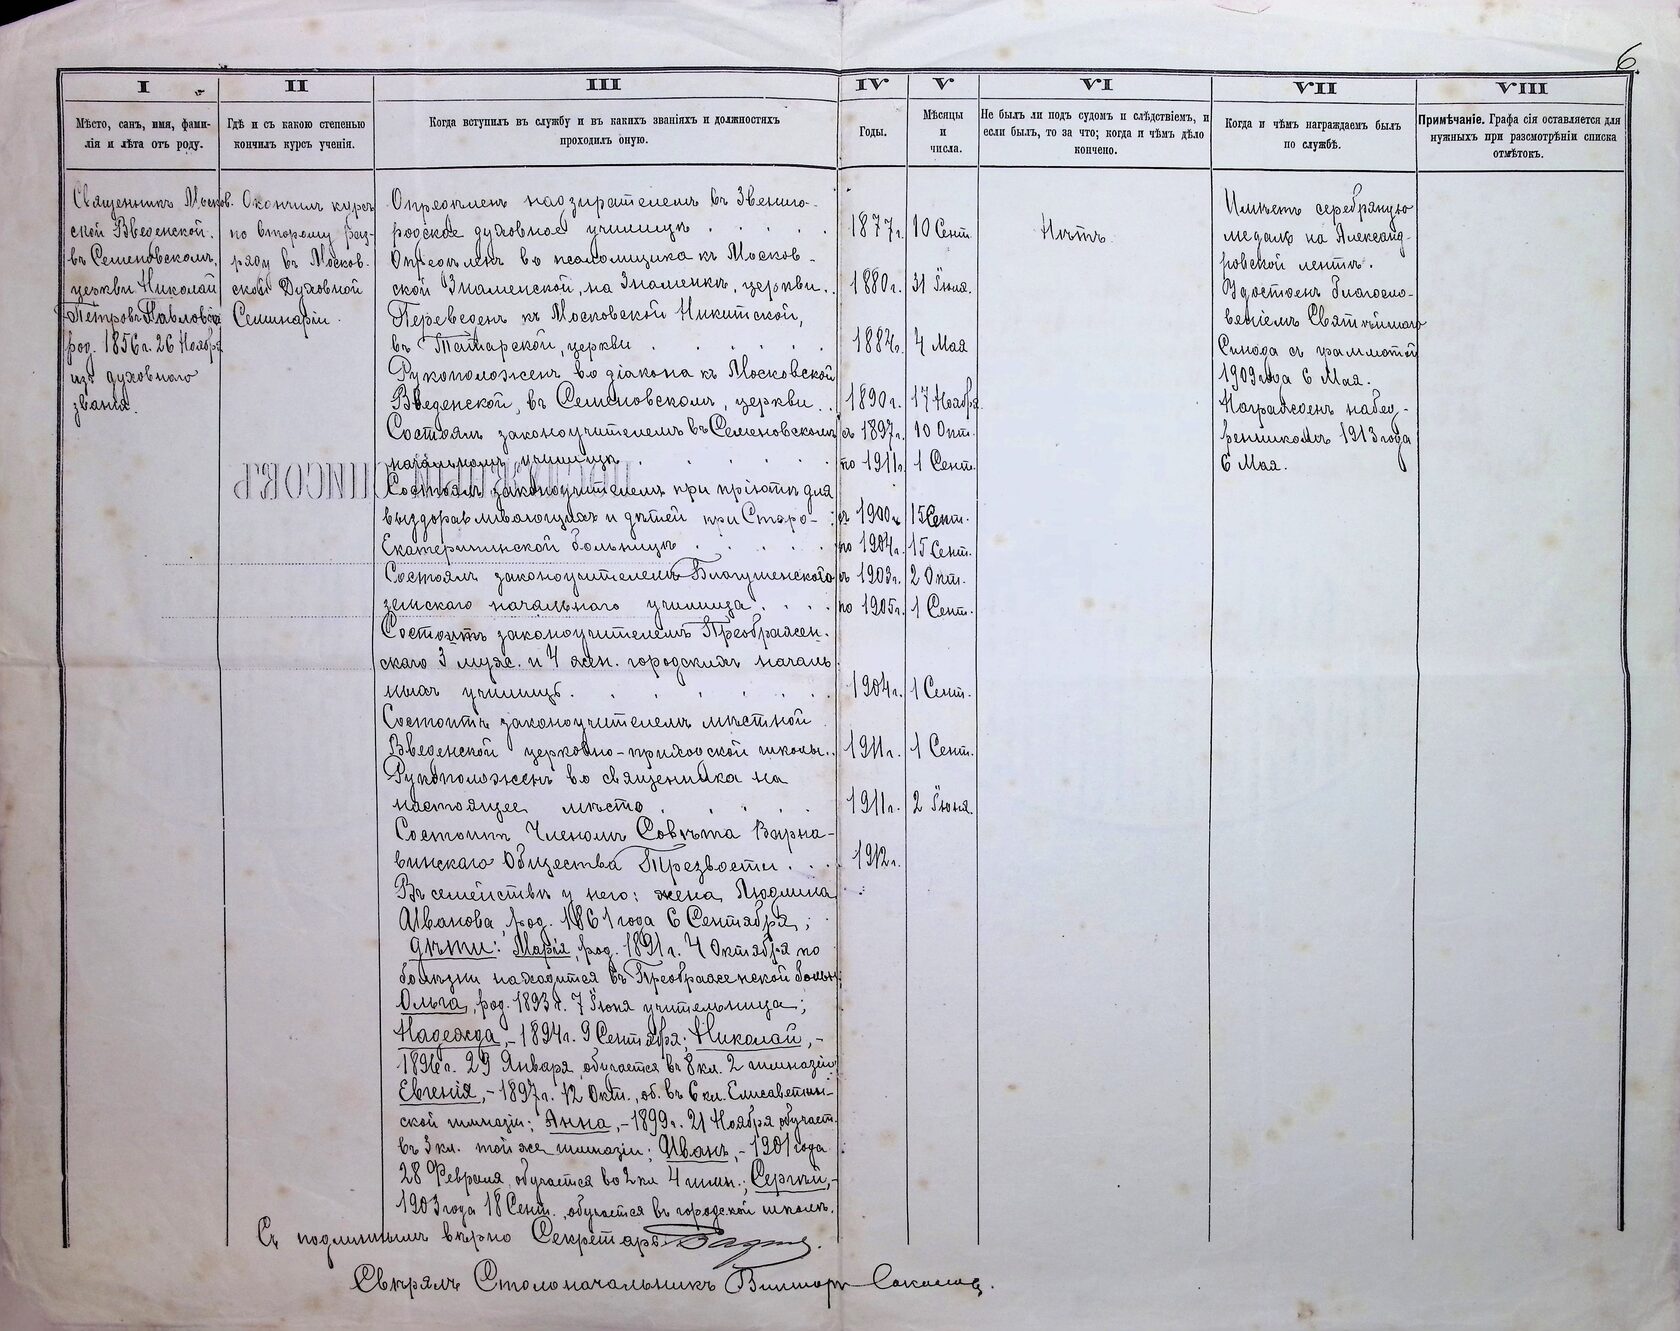 6
I
II
III
IV
V
VI
VII
VIII
Мѣсто, санъ, имя, фами-
лія и лѣта отъ роду.
Гдѣ и съ какою степенью
кончилъ курсъ ученія.
Когда вступилъ въ службу и въ какихъ званіяхъ и должностяхъ
проходилъ оную.
Годы.
Мѣсяцы
и
числа.
Не былъ ли подъ судомъ и слѣдствіемъ, и
если былъ, то за что; когда и чѣмъ дѣло
кончено.
Когда и чѣмъ награждаемъ былъ
по службѣ.
Примѣчаніе. Графа сія оставляется для
нужныхъ при разсмотрѣніи списка
отмѣтокъ.
Священникъ Москов.
ской Введенской,
въ Семеновскомъ,
церкви Николай
Петровъ Павловскій
род. 1856 г. 26 Ноября
изъ духовнаго
званія.
Окончилъ курсъ
по второму раз-
ряду въ Москов-
ской Духовной
Семинаріи.
Опредѣленъ надзирателемъ въ Звениго-
родское духовное училище . . . . . 1877 г. 10 Сент.
Опредѣленъ во псаломщика къ Москов-
ской Знаменской, на Знаменкѣ, церкви. . 1880 г. 31 Іюля.
Переведенъ къ Московской Никитской,
въ Татарской, церкви . . . . . . 1884 г. 4 Мая
Рукоположенъ во діакона къ Московской
Введенской, въ Семеновскомъ, церкви. . 1890 г. 17 Ноября
Состоялъ законоучителемъ въ Семеновскомъ съ 1897 г. 10 Окт.
начальномъ училищѣ . . . . . . по 1911 г. 1 Сент.
Состоялъ законоучителемъ при пріютѣ для
выздоравливающихъ дѣтей при Старо- съ 1900 г. 15 Сент.
Екатерининской больницѣ . . . . . по 1904 г. 15 Сент.
Состоялъ законоучителемъ Благушенскаго съ 1903 г. 2 Окт.
земскаго начальнаго училища . . . . по 1905 г. 1 Сент.
Состоитъ законоучителемъ Преображен-
скаго 3 муж. и 4 жен. городскихъ началь
ныхъ училищъ. . . . . . . 1904 г. 1 Сент.
Состоитъ законоучителемъ мѣстной
Введенской церковно-приходской школы. . 1911 г. 1 Сент.
Рукоположенъ во священника на
настоящее мѣсто . . . . . . 1911 г. 2 Іюня.
Состоитъ Членомъ Совѣта Варна-
винскаго Общества Трезвости . . . 1912 г.
Въ семействѣ у него: жена Людмила
Иванова, род. 1861 года 6 Сентября;
дѣти: Марія, род. 1891 г. 4 Октября по
болѣзни находится въ Преображенской больн.
Ольга, род. 1893 г. 7 Іюня учительница;
Надежда, - 1894 г. 9 Сентября; Николай, -
1896 г. 29 Января, обучается въ 8 кл. 2 гимназіи;
Евгенія, - 1897 г. 12 Окт., об. въ 6 кл. Елисаветин-
ской гимназіи; Анна, - 1899 г. 21 Ноября обучает.
въ 3 кл. той же гимназіи; Иванъ, - 1901 года
28 Февраля, обучается во 2 кл. 4 гимн.; Сергѣй, -
1903 года 18 Сент., обучается въ городской школѣ.
Нѣтъ.
Имѣетъ серебряную
медаль на Александ-
ровской лентѣ.
Удостоенъ благосло-
веніемъ Святѣйшаго
Синода съ грамотой
1909 года 6 Мая.
Награжденъ набед-
ренникомъ 1913 года
6 Мая.
Съ подлиннымъ вѣрно Секретарь
Свѣрялъ Столоначальникъ Викторъ Соколовъ.